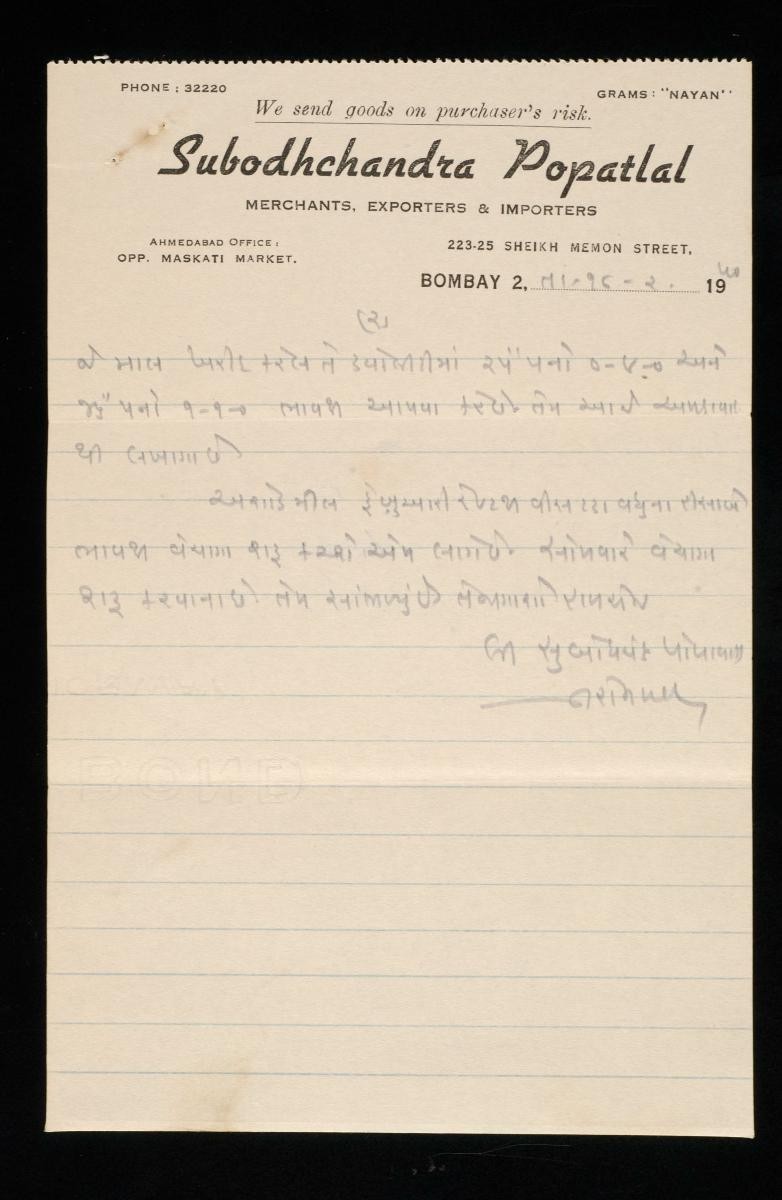 PHONE : 32220
GRAMS : "NAYAN"
We send goods on purchaser's risk.
Subodhchandra Popatlal
MERCHANTS, EXPORTERS & IMPORTERS
AHMEDABAD OFFICE :
OPP. MASKATI MARKET.
223-25 SHEIKH MEMON STREET,
BOMBAY 2, તા. ૧૮-૨. 19
(૨)
જે માલ ખરીદ કરેલ તે ક્વોલીટીમાં ૨૫" પનો ૦-૪-૦ અને
પનો ૧-૧-૦ ભાવથી આપવા કરેછે. તેમ આજે
થી લખાયા છે
અશોક મીલ વીસ ટકા વધુના હીસાબે
ભાવથી વેચવા શરૂ કરશે એમ લાગેછે. સોમવારે વેચવા
શરૂ કરવાનાછે તેમ સાંભળ્યું છે
લી સુબોધચંદ્ર પોપટલાલ
BOND